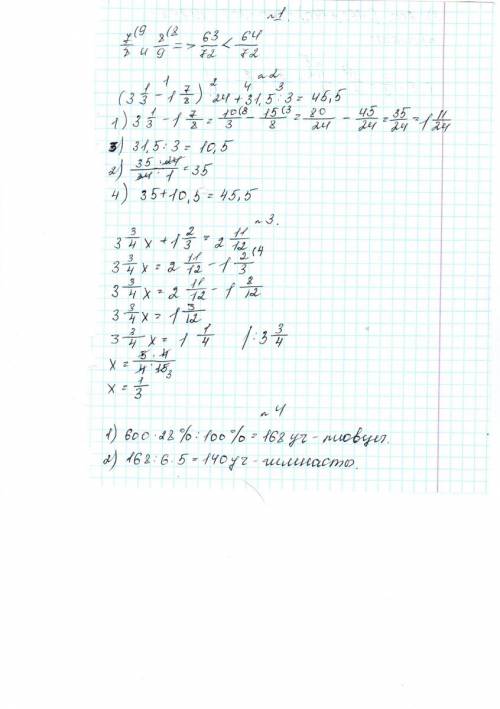 №1.
7/8 (9 и 8/9 (8 => 63/72 < 64/72
№2
(3 1/3 - 1 7/8) 24 + 31,5 : 3 = 45,5
1) 3 1/3 - 1 7/8 = 10/3 (8 - 15/8 (3 = 80/24 - 45/24 = 35/24 = 1 11/24
3) 31,5 : 3 = 10,5
2) 35 · 24 / 24 · 1 = 35
4) 35 + 10,5 = 45,5
№3.
3 3/4 x + 1 2/3 = 2 11/12
3 3/4 x = 2 11/12 - 1 2/3 (4
3 3/4 x = 2 11/12 - 1 8/12
3 3/4 x = 1 3/12
3 3/4 x = 1 1/4 | : 3 3/4
x = 5 · 4 / 4 · 15 3
x = 1/3
№4
1) 600 · 28% : 100% = 168 уч - пловцы.
2) 168 : 6 · 5 = 140 уч - гимнасты.